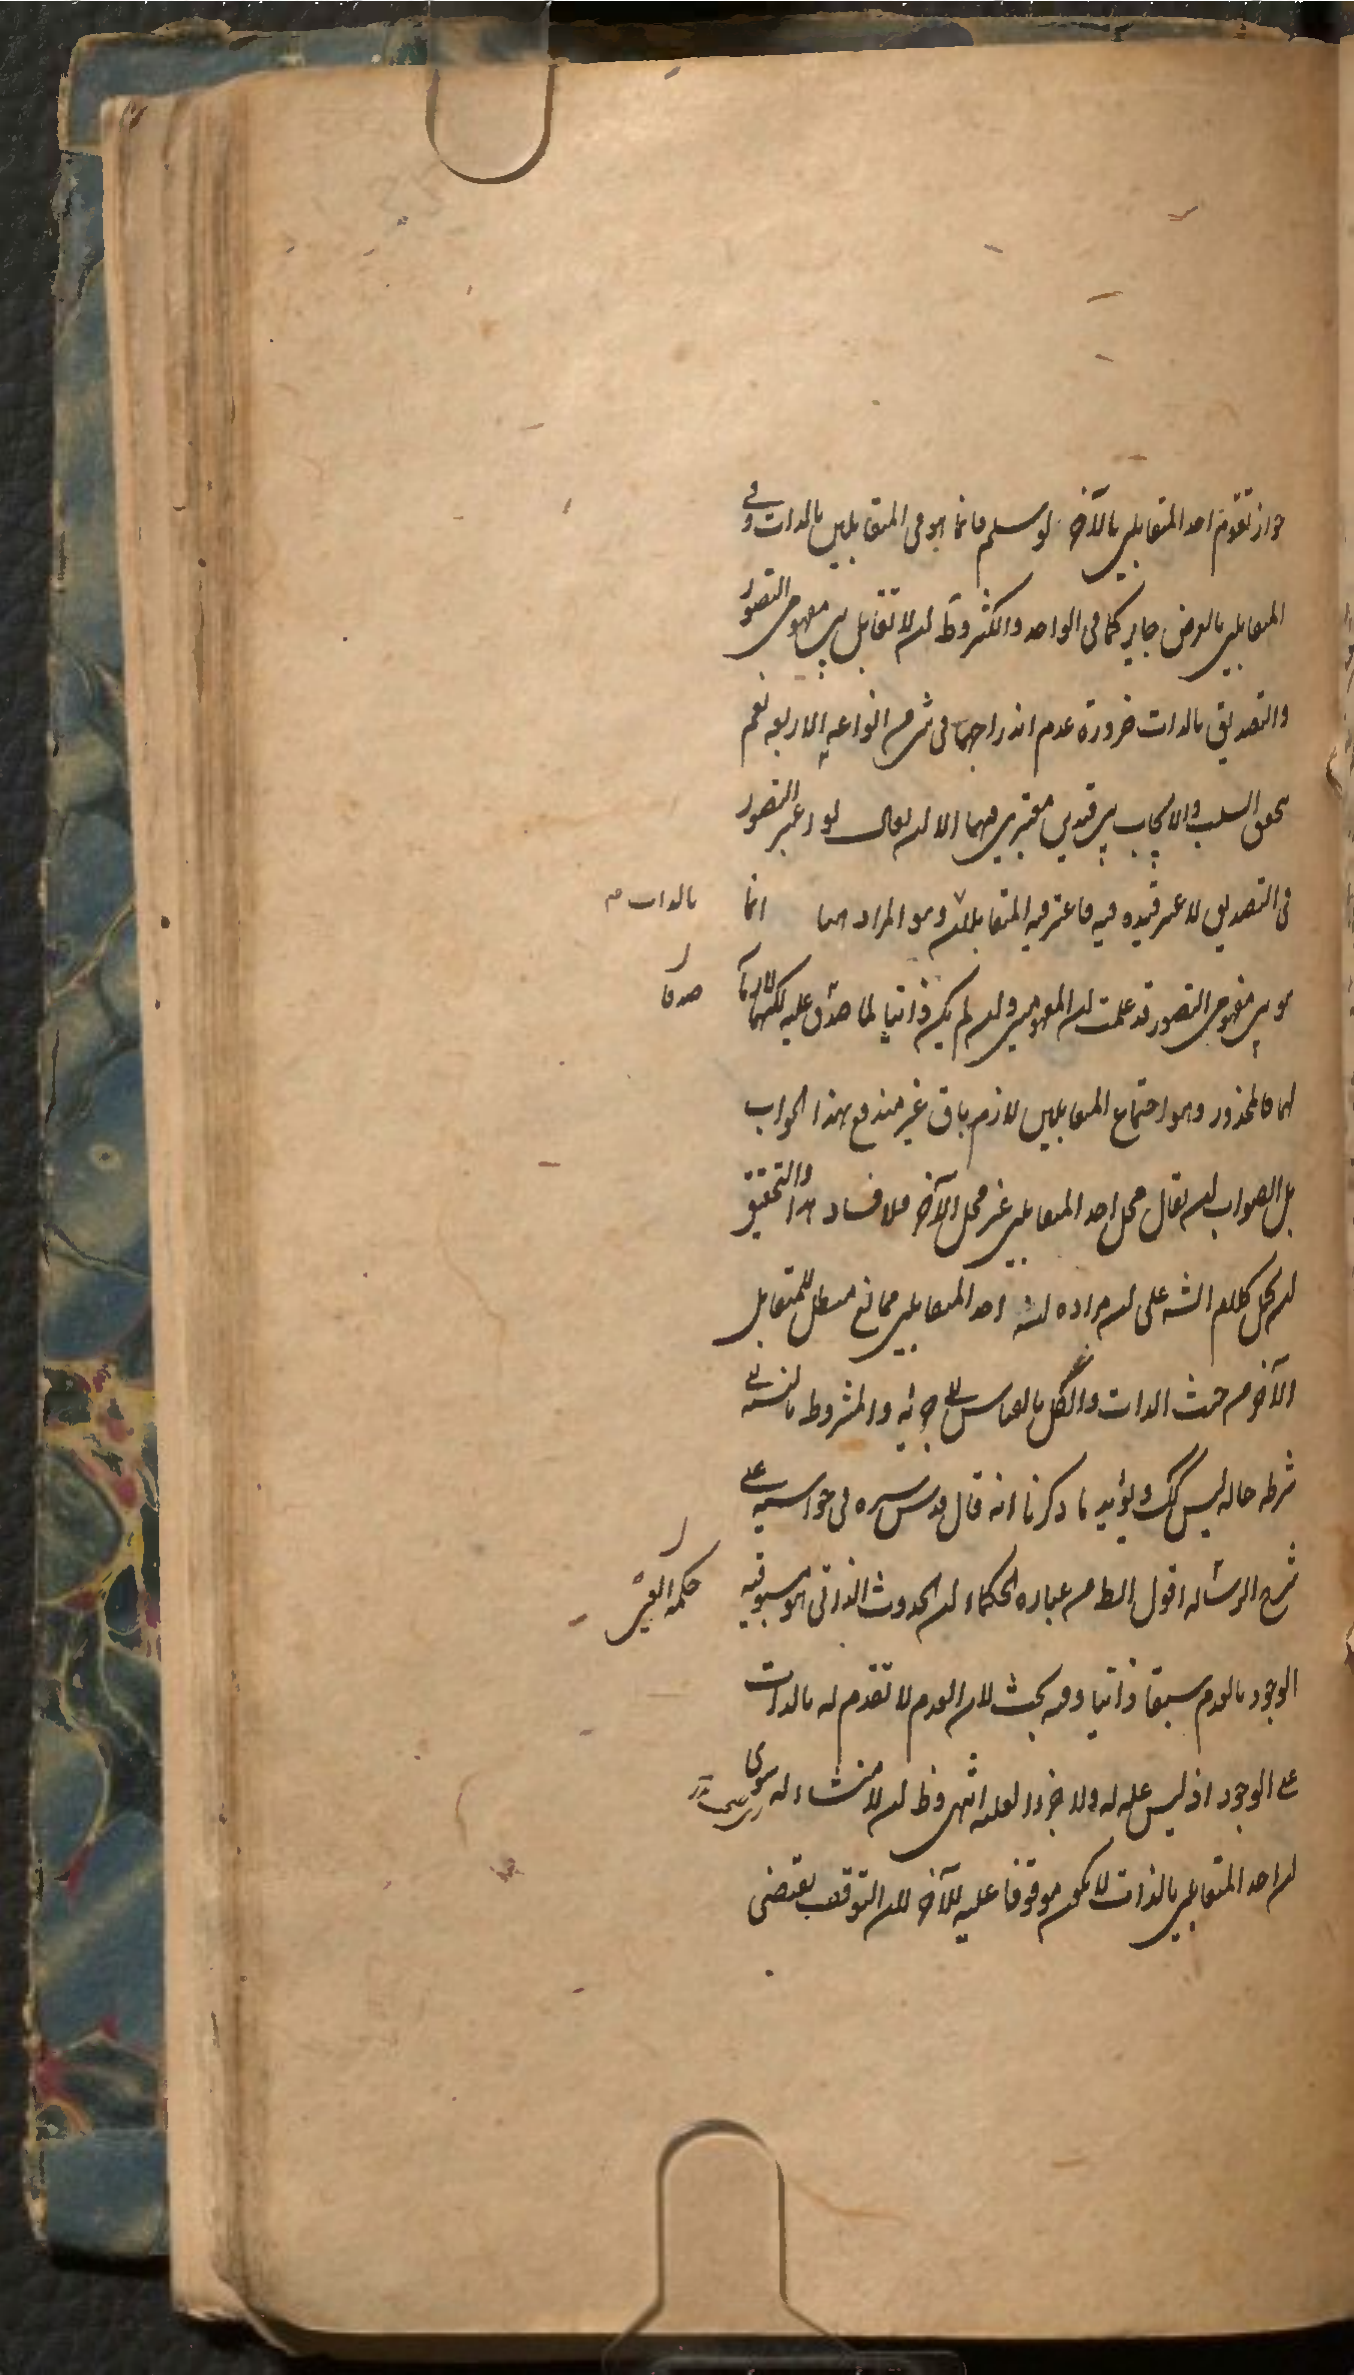 جواز تقوم احد المتقابلين بالآخر لو سلم فانما هو في المتقابلين بالذات وفي
المتقابلين بالعرض جايز كما في الواحد والكثير وظ ان لا تقابل بين مفهومي التصور
والتصديق بالذات ضرورة عدم اندراجهما في شئ من انواعه الاربعه نعم
يتحقق السلب والايجاب بين قيدين معتبرين فيهما الا ان يقال لو اعتبر التصور
في التصديق لاعتبر قيده فيه فاعتبر فيه المتقابلان وهو المراد هنا انما
بالذات
هو بين مفهومي التصور قد علمت ان المفهومين وان لم يكن ذاتيا لما صدق عليه لكنهما لازمان
صدقا
لهما فالمحذور وهو اجتماع المتقابلين لازم باق غير مندفع بهذا الجواب
بل الصواب ان يقال محل احد المتقابلين غير محل الآخر فلا فساد هذا والتحقيق
ان يحمل كلام الشه على ان مراده ان احد المتقابلين ممانع مبطل للمتقابل
الآخر من حيث الذات والكل بالقياس الى جزئه والمشروط بالنسبة الى
شرطه حاله ليس كك ويؤيد ما ذكرنا انه قال قدس سره في حواشيه على
شرح الرسالة اقول الظ من عبارة الحكماء ان الحدوث الذاتي هو مسبوقيه
حكمة العين
الوجود بالعدم سبقا ذاتيا وفيه بحث لان العدم لا تقدم له بالذات
على الوجود اذ ليس علة له ولا جزءا لعلته انتهى وظ ان لا منشاء له سوى
ان احد المتقابلين بالذات لا يكون موقوفا عليه للآخر لان التوقف يقتضى